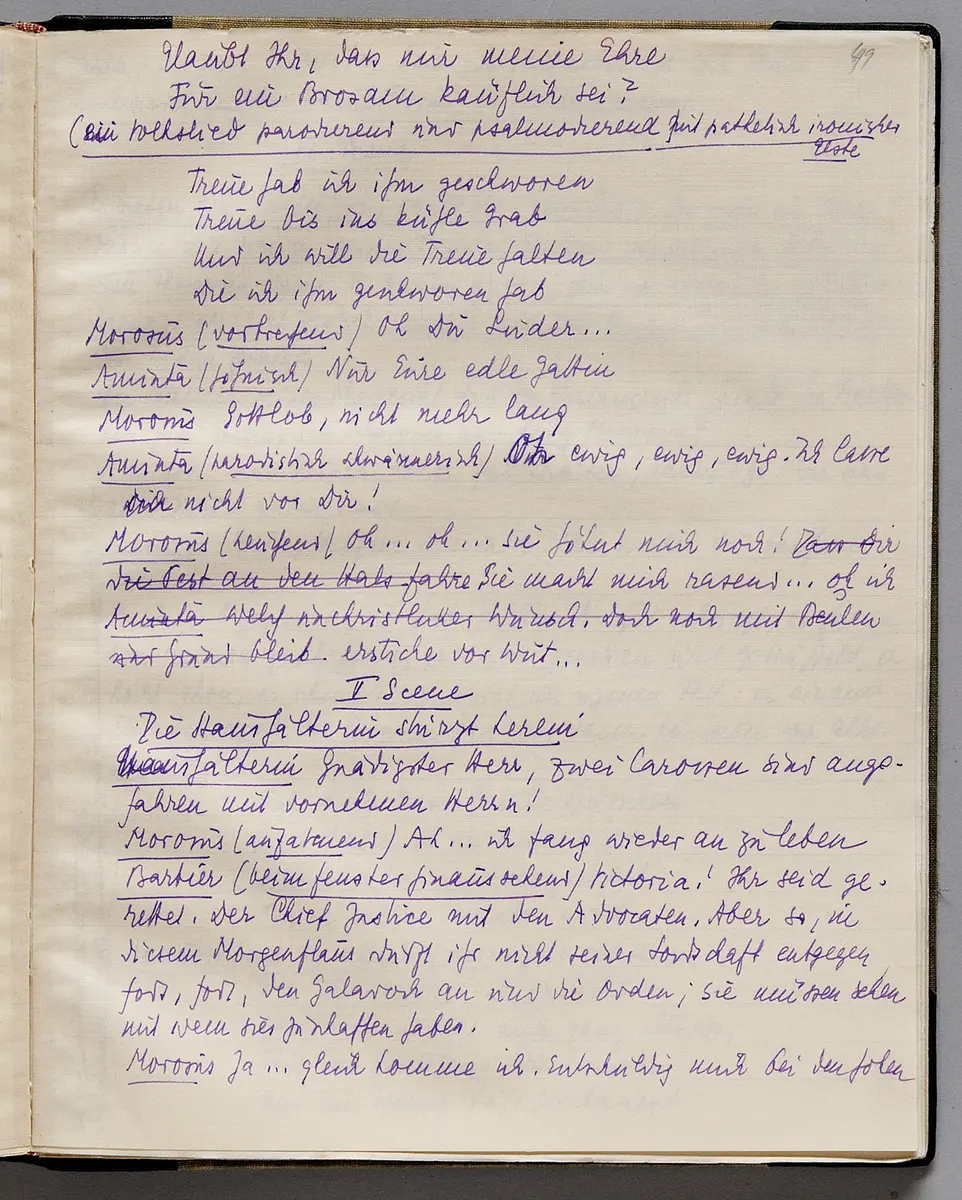 49
Glaubt Ihr, dass mir meine Ehre
Für ein Brosam käuflich sei?
(ein Volkslied parodierend und psalmodierend mit pathetisch ironischer
Geste
Treue hab ich ihm geschworen
Treue bis ins kühle Grab
Und ich will die Treue halten
Die ich ihm geschworen hab
Morosus (vortretend) Oh Du Luder...
Aminta (höhnisch) Nur Eure edle Gattin
Morosus Gottlob, nicht mehr lang
Aminta (parodistisch schwärmerisch) Oh ewig, ewig, ewig. Ich lasse
nicht vor Dir!
Morosus (keuchend) Oh... oh... sie höhnt mich noch! Dass Dir
die Pest an den Hals fahre Sie macht mich rasend... oh ich
Aminta Welch unchristlicher Wunsch. Doch noch mit Beulen
bleib. ersticke vor Wut...
II Scene
Die Haushälterin stürzt herein
Haushälterin Gnädigster Herr, zwei Carossen sind ange-
fahren mit vornehmen Herrn!
Morosus (aufatmend) Ah... ich fang wieder an zu leben
Barbier (beim Fenster hinaussehend) Victoria! Ihr seid ge-
rettet. Der Chief Justice mit den Advocaten. Aber so, in
diesem Morgenflaus dürft ihr nicht seiner Lordschaft entgegen
fort, fort, den Galarock an und die Orden; sie müssen sehen
mit wem sies zuschaffen haben.
Morosus Ja... gleich komme ich. Entschuldig mich bei den hohen